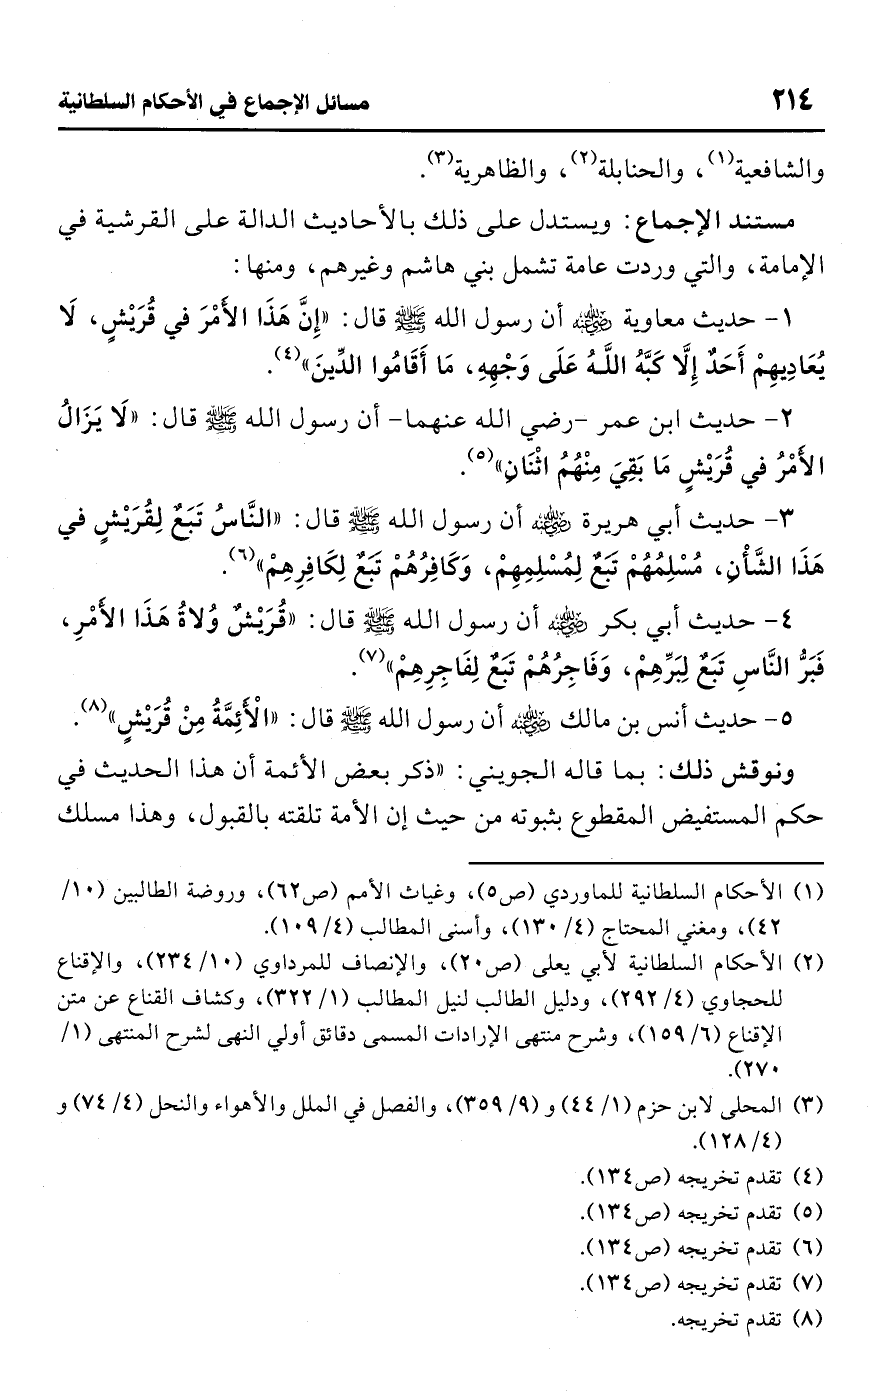 ٢١٤ مسائل الإجماع في الأحكام السلطانية
والشافعية(١)، والحنابلة(٢)، والظاهرية(٣).
مستند الإجماع: ويستدل على ذلك بالأحاديث الدالة على القرشية في
الإمامة، والتي وردت عامة تشمل بني هاشم وغيرهم، ومنها:
١- حديث معاوية رضي الله عنه أن رسول الله ﷺ قال: «إِنَّ هَذَا الأَمْرَ في قُرَيْشٍ، لَا
يُعَادِيهِمْ أَحَدٌ إِلَّا كَبَّهُ اللَّهُ عَلَى وَجْهِهِ، مَا أَقَامُوا الدِّينَ»(٤).
٢- حديث ابن عمر -رضي الله عنهما- أن رسول الله ﷺ قال: «لَا يَزَالُ
الأَمْرُ في قُرَيْشٍ مَا بَقِيَ مِنْهُمُ اثْنَانِ»(٥).
٣- حديث أبي هريرة رضي الله عنه أن رسول الله ﷺ قال: «النَّاسُ تَبَعٌ لِقُرَيْشٍ في
هَذَا الشَّأْنِ، مُسْلِمُهُمْ تَبَعٌ لِمُسْلِمِهِمْ، وَكَافِرُهُمْ تَبَعٌ لِكَافِرِهِمْ»(٦).
٤- حديث أبي بكر رضي الله عنه أن رسول الله ﷺ قال: «قُرَيْشٌ وُلاةُ هَذَا الأَمْرِ،
فَبَرُّ النَّاسِ تَبَعٌ لِبَرِّهِمْ، وَفَاجِرُهُمْ تَبَعٌ لِفَاجِرِهِمْ»(٧).
٥- حديث أنس بن مالك رضي الله عنه أن رسول الله ﷺ قال: «الْأَئِمَّةُ مِنْ قُرَيْشٍ»(٨).
ونوقش ذلك: بما قاله الجويني: «ذكر بعض الأئمة أن هذا الحديث في
حكم المستفيض المقطوع بثبوته من حيث إن الأمة تلقته بالقبول، وهذا مسلك
(١) الأحكام السلطانية للماوردي (ص٥)، وغياث الأمم (ص٦٢)، وروضة الطالبين (١٠/
٤٢)، ومغني المحتاج (٤/ ١٣٠)، وأسنى المطالب (٤/ ١٠٩).
(٢) الأحكام السلطانية لأبي يعلى (ص٢٠)، والإنصاف للمرداوي (١٠/ ٢٣٤)، والإقناع
للحجاوي (٤/ ٢٩٢)، ودليل الطالب لنيل المطالب (١/ ٣٢٢)، وكشاف القناع عن متن
الإقناع (٦/ ١٥٩)، وشرح منتهى الإرادات المسمى دقائق أولي النهى لشرح المنتهى (١/
٢٧٠).
(٣) المحلى لابن حزم (١/ ٤٤) و (٩/ ٣٥٩)، والفصل في الملل والأهواء والنحل (٤/ ٧٤) و
(٤/ ١٢٨).
(٤) تقدم تخريجه (ص١٣٤).
(٥) تقدم تخريجه (ص١٣٤).
(٦) تقدم تخريجه (ص١٣٤).
(٧) تقدم تخريجه (ص١٣٤).
(٨) تقدم تخريجه.